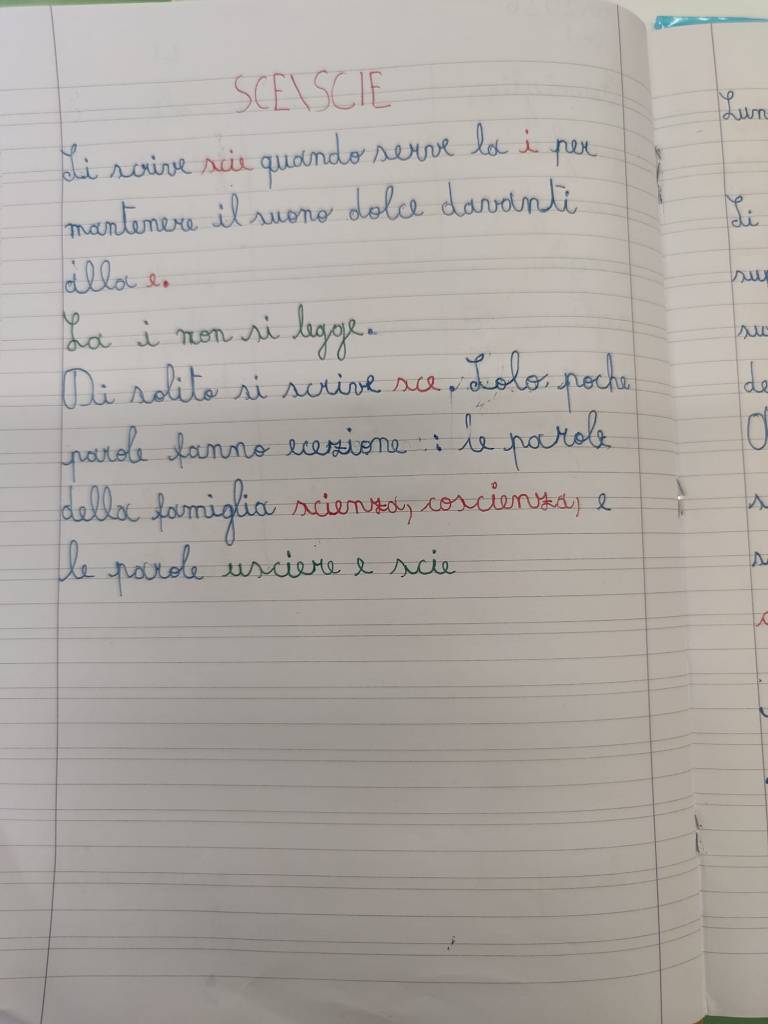 SCE\SCIE
Si scrive scie quando serve la i per
mantenere il suono dolce davanti
alla e.
La i non si legge.
Di solito si scrive sce. Solo poche
parole fanno ecezione : le parole
della famiglia scienza, coscienza, e
le parole usciere e scie
Lun
Si
de